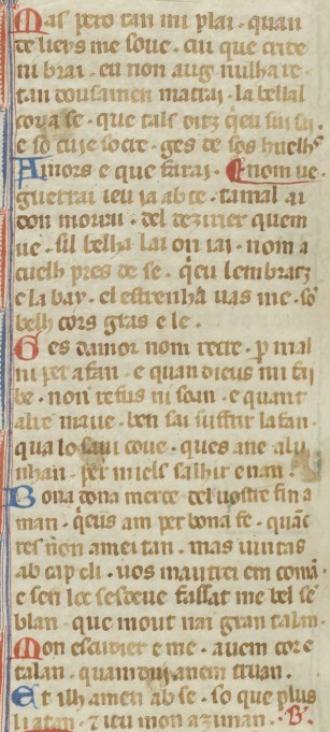 Mas pero tan mi plai · quan
de lieys me soue · cui que crite
ni brai · eu non aug nulha re ·
tan dousamen matrai · la bellal
cor a se · que tals ditz qeu sui sai ·
e so cuie socre · ges de sos huelhs
Amors e que farai · Enom ue ·
guerrai ieu ia ab te · tamal ai
don morrai · del dezirier quem
ue · sil belha lai on iai · nom a
cuelh pres de se · qeu lembratz
e la bay · el estrenha uas me · so
belh cors gras e le ·
Ges damor nom recre · p mal
ni per afan · e quan dieus mi fay
be · non refus ni soan · e quant
alre maue · ben sai suffrir lafan ·
qua lo saui coue · ques ane alu
nhan · per miels salhir enan ·
Bona dona merce del uostre fin a
man · qeus am per bona fe · quāc
res non amei tan · mas iuntas
ab cap cli · uos mautrei em comā ·
e sen loc sesdeue fassat me bel sē
blan que mout nai gran talan ·
Mon escudier e me · auem cor e
talan · quamdui anem truan ·
Et ilh amen ab se · so que plus
li atan · 7 ieu mon aziman · B